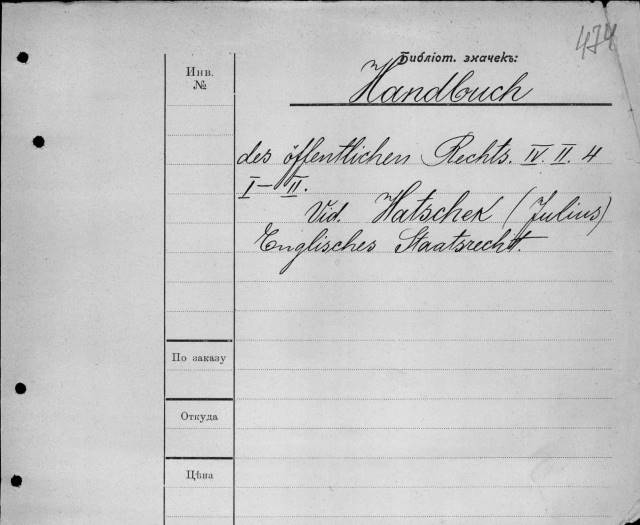 474
Библіот. значекъ:
Инв.
№
Handbuch
des öffentlichen Rechts. IV. II. 4
I–II.
Vid. Hatschek (Julius)
Englisches Staatsrecht.
По заказу
Откуда
Цѣна